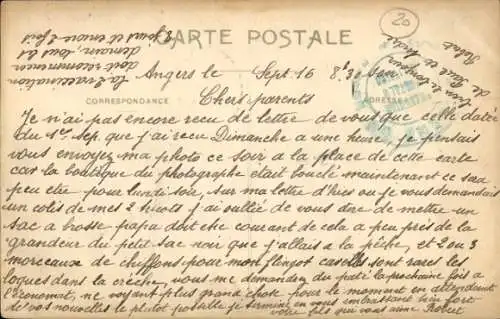 20
CARTE POSTALE
CORRESPONDANCE
ADRESSE
la Vaccination
doit recommencer
demain, tous les
8 jours et encore 2 fois
Bien le bonjour
de Paul et André
Robert
Angers le Sept 16 8h30 soir
Chers parents
Je n'ai pas encore recu de lettre de vous que celle datée
du 1er Sep. que j'ai recu Dimanche a une heure, je pensais
vous envoyez ma photo ce soir a la place de cette carte
car la boutique du photographe était bouclé maintenant ce sara
peu etre pour lundi soir, sur ma lettre d'hier ou je vous demandais
un colis de mes 2 tricots j'ai oullié de vous dire de mettre un
sac a brosse papa doit etre courant de cela a peu près de la
grandeur du petit sac noir que j'allais a la pêche, et 2 ou 3
morceaux de chiffons pour mon flingot car elles sont rares les
loques dans la crèche, vous me demandez du paté la prochaine fois a
l'économat, ne voyant plus grand chose pour le moment en attendant
de vos nouvelles le plutot possible je termine en vous embrassant bien fort
votre fils qui vous aime Robert